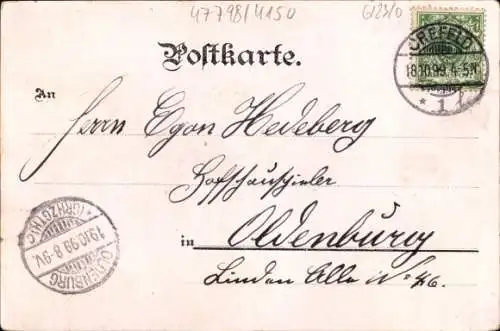 47798/4150
Postkarte.
CREFELD
18.10.99. 4-5N.
* 1 f.
An
Herrn Egon Hedeberg
Hofschauspieler
in Oldenburg
Linden Alle No 46.
OLDENBURG
19.10.99. 8-9V.